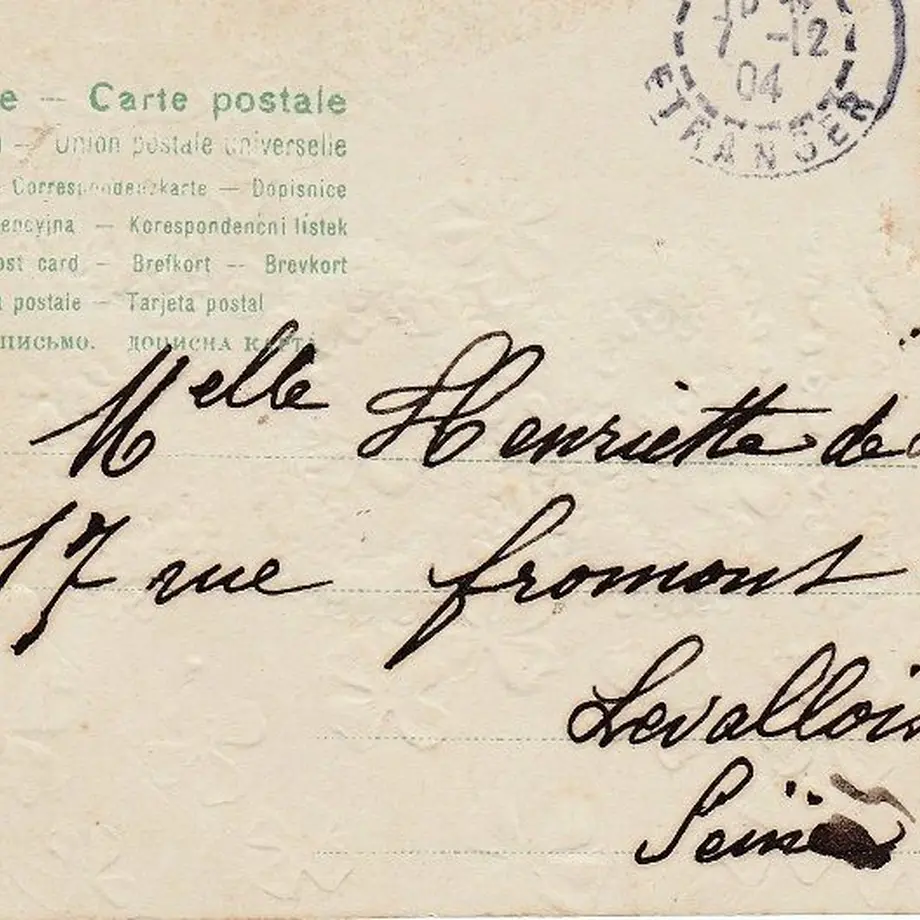 7 -12
04
ETRANGER
e — Carte postale
— Union postale universelle
Correspondenzkarte — Dopisnice
encyjna — Korespondenční lístek
ost card — Brefkort — Brevkort
postale — Tarjeta postal
письмо. дописна карта
Melle Henriette de
17 rue fromont
Levallois
Seine